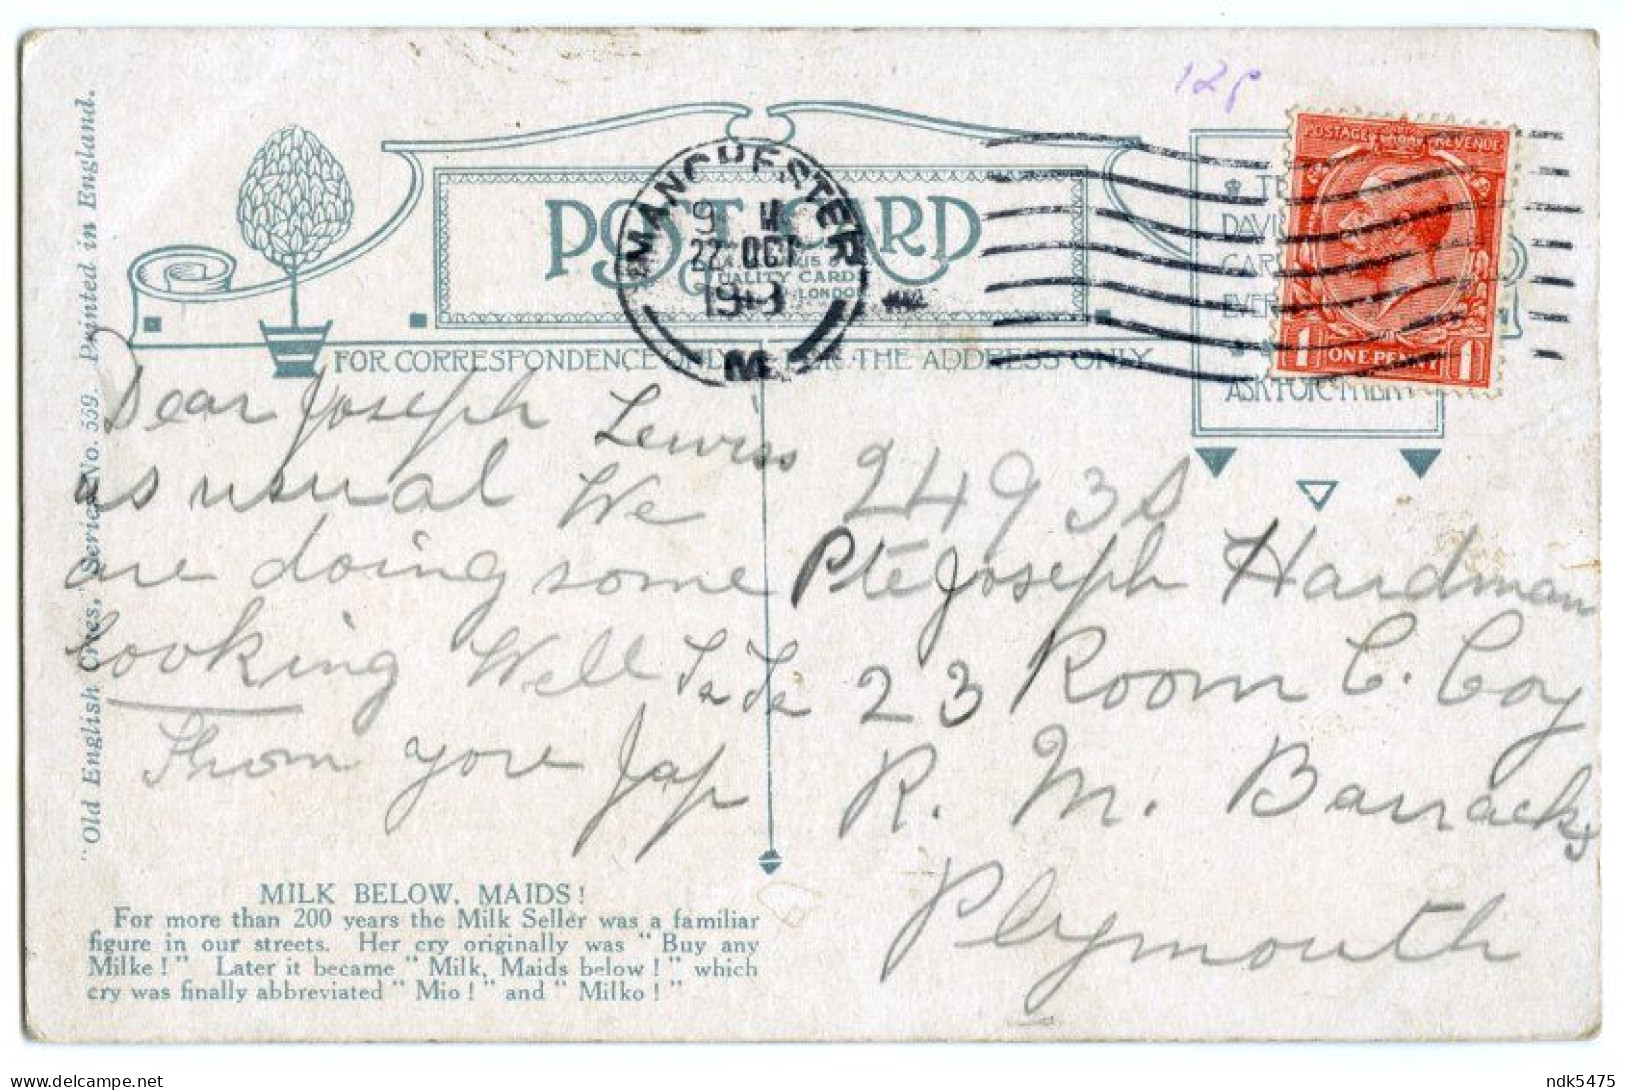 12p
POST CARD
MANCHESTER
22 OCT
1919
POSTAGE REVENUE
1 ONE PENNY 1
FOR CORRESPONDENCE ONLY
FOR THE ADDRESS ONLY
ASK FOR THEM
Dear Joseph Lewiss
as usual We
are doing some
looking Well Ta Ta
From your Jap
2493
Pte Joseph Hardman
23 Room C. Coy
R. M. Barracks
Plymouth
"Old English Cries," Series No. 559. Printed in England.
MILK BELOW, MAIDS!
For more than 200 years the Milk Seller was a familiar
figure in our streets. Her cry originally was "Buy any
Milke!" Later it became "Milk, Maids below!" which
cry was finally abbreviated "Mio!" and "Milko!"
ndk5475